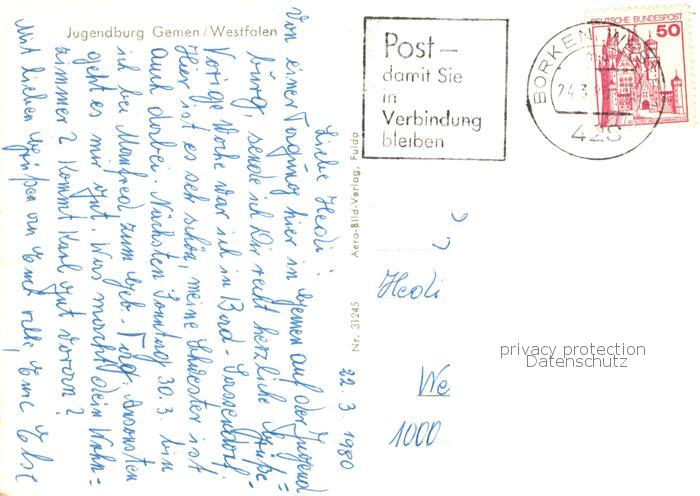 Jugendburg Gemen/Westfalen
22. 3. 1980
Liebe Hedi!
Von einer Tagung hier in Gemen auf der Jugend=
burg, sende ich Dir recht herzliche Grüße.
Vorige Woche war ich in Bad-Sassendorf.
Hier ist es sehr schön, meine Schwester ist
auch dabei. Nächsten Sonntag 30.3. bin
ich bei Manfred zum Geb. Tag. Ansonsten
geht es mir gut. Was macht dein Wohn=
zimmer? Kommt Karl gut voran?
Mit lieben Grüßen an Euch alle, Eure Else
Nr. 31245
Aero-Bild-Verlag, Fulda
Post-
damit Sie
in
Verbindung
bleiben
BORKEN, WESTF
24.3.
428
DEUTSCHE BUNDESPOST
50
Hedi
We
1000
privacy protection
Datenschutz